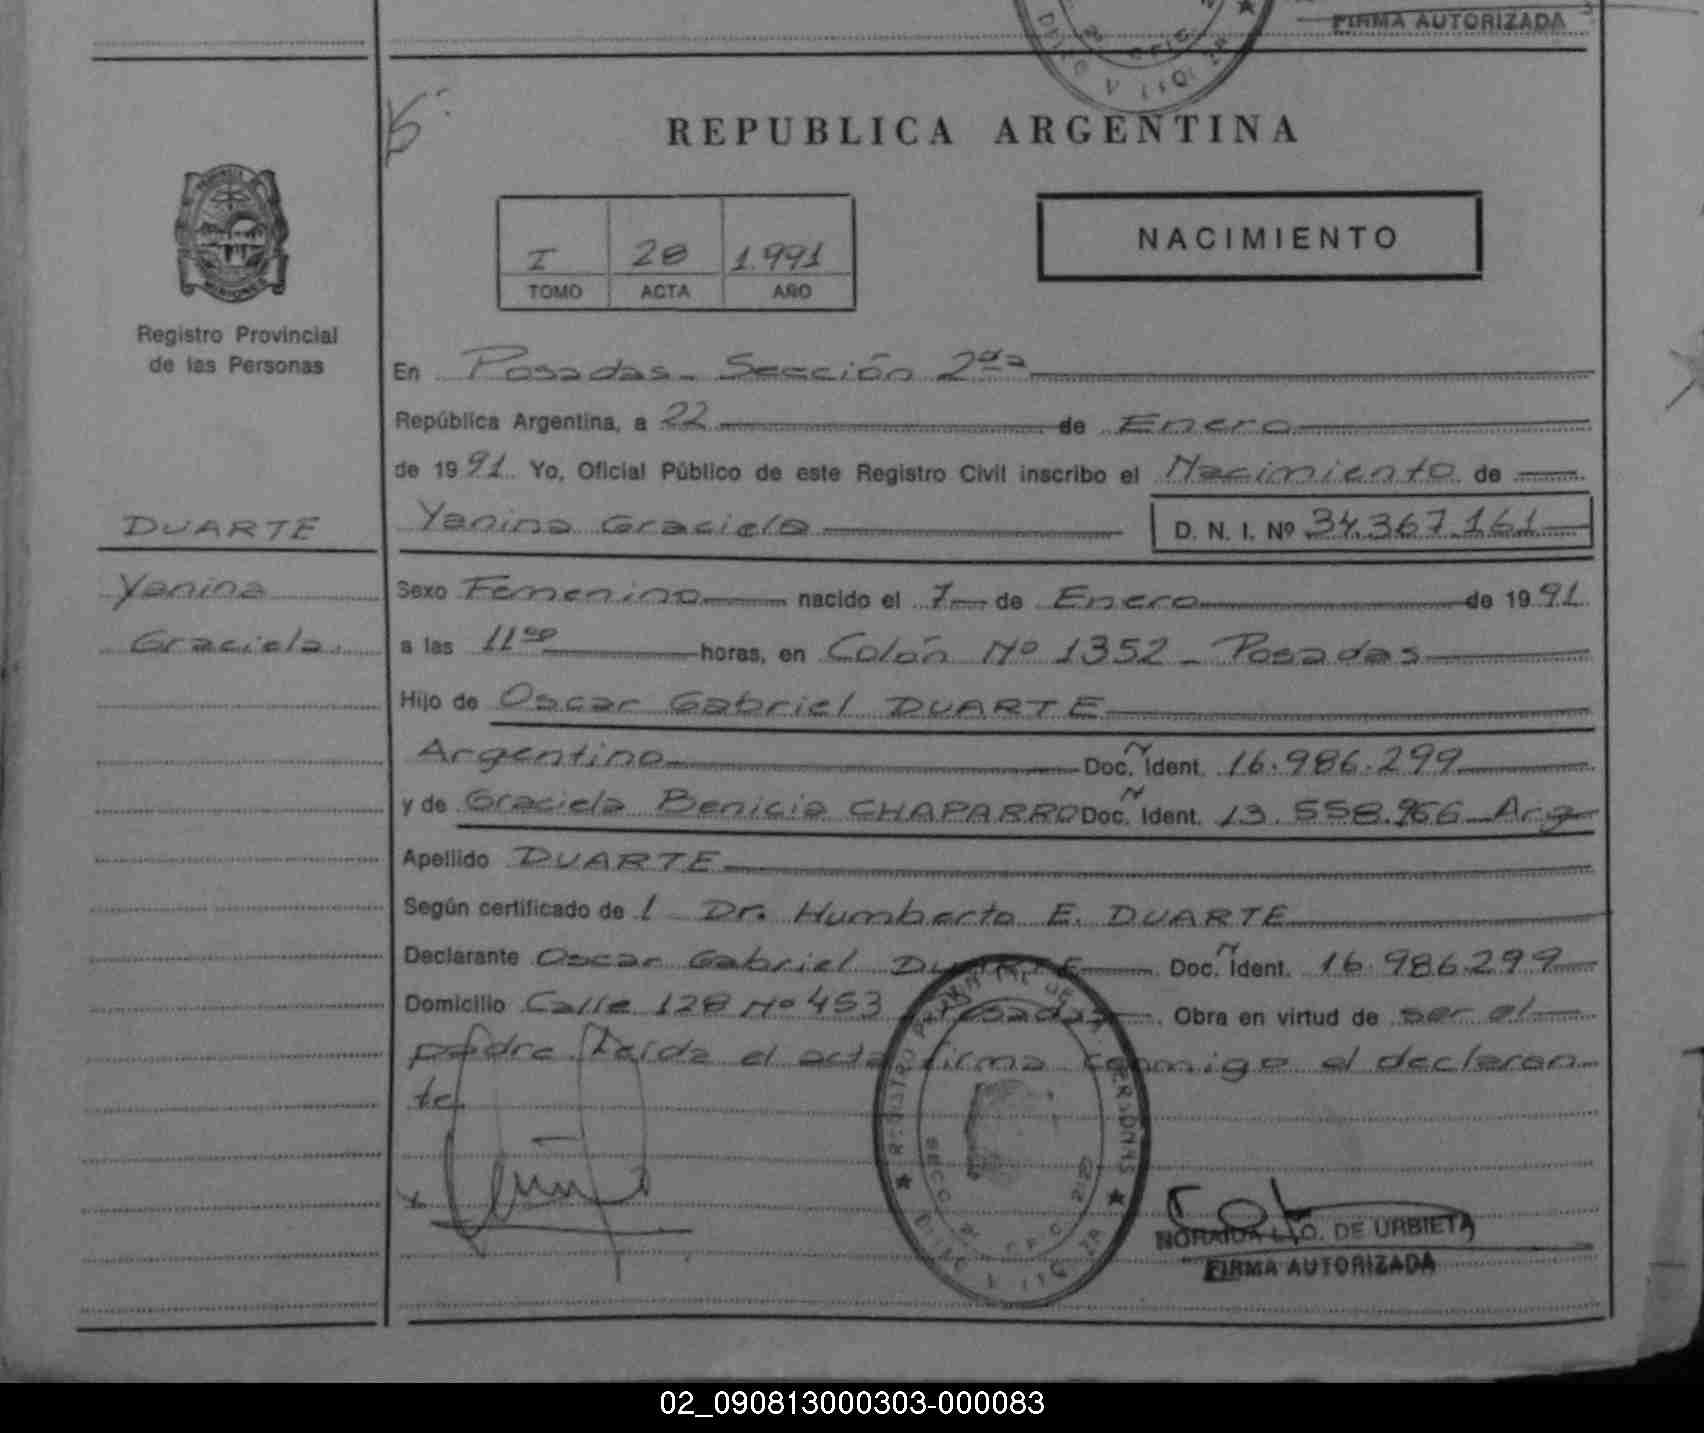 FIRMA AUTORIZADA
REPUBLICA ARGENTINA
I 28 1.991
TOMO ACTA AÑO
NACIMIENTO
Registro Provincial
de las Personas
En Posadas - Sección 2da
República Argentina, a 22 de Enero
de 1991 Yo, Oficial Público de este Registro Civil inscribo el Nacimiento de
DUARTE
Yanina Graciela D. N. I. Nº 34.367.161
Yanina
Sexo Femenino nacido el 7 de Enero de 1991
Graciela
a las 11 horas, en Colón Nº 1352 - Posadas
Hijo de Oscar Gabriel DUARTE
Argentino Doc. Ident. 16.986.299
y de Graciela Benicia CHAPARRO Doc. Ident. 13.558.966 Arg
Apellido DUARTE
Según certificado de / Dr. Humberto E. DUARTE
Declarante Oscar Gabriel DUARTE Doc. Ident. 16.986.299
Domicilio Calle 128 Nº 453 Posadas. Obra en virtud de ser el
padre. Leída el acta firma conmigo el declaran
te
REGISTRO PROVINCIAL DE PERSONAS
NORAIDA L. O. DE URBIETA
FIRMA AUTORIZADA
02_090813000303-000083